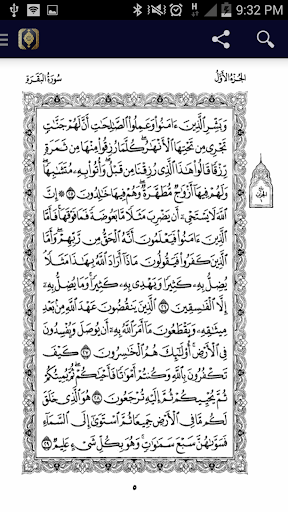 9:32 PM
سُورَةُ البَقَرَةِ
الجُزْءُ الأَوَّلُ
وَبَشِّرِ ٱلَّذِينَ ءَامَنُوا۟ وَعَمِلُوا۟ ٱلصَّـٰلِحَـٰتِ أَنَّ لَهُمْ جَنَّـٰتٍ
تَجْرِى مِن تَحْتِهَا ٱلْأَنْهَـٰرُ ۖ كُلَّمَا رُزِقُوا۟ مِنْهَا مِن ثَمَرَةٍ
رِّزْقًا ۙ قَالُوا۟ هَـٰذَا ٱلَّذِى رُزِقْنَا مِن قَبْلُ ۖ وَأُتُوا۟ بِهِۦ مُتَشَـٰبِهًا ۖ
وَلَهُمْ فِيهَآ أَزْوَٰجٌ مُّطَهَّرَةٌ ۖ وَهُمْ فِيهَا خَـٰلِدُونَ ٢٥ ۞ إِنَّ
ٱللَّهَ لَا يَسْتَحْىِۦٓ أَن يَضْرِبَ مَثَلًا مَّا بَعُوضَةً فَمَا فَوْقَهَا ۚ فَأَمَّا
ٱلَّذِينَ ءَامَنُوا۟ فَيَعْلَمُونَ أَنَّهُ ٱلْحَقُّ مِن رَّبِّهِمْ ۖ وَأَمَّا
ٱلَّذِينَ كَفَرُوا۟ فَيَقُولُونَ مَاذَآ أَرَادَ ٱللَّهُ بِهَـٰذَا مَثَلًا ۘ
يُضِلُّ بِهِۦ كَثِيرًا وَيَهْدِى بِهِۦ كَثِيرًا ۚ وَمَا يُضِلُّ بِهِۦٓ
إِلَّا ٱلْفَـٰسِقِينَ ٢٦ ٱلَّذِينَ يَنقُضُونَ عَهْدَ ٱللَّهِ مِنۢ بَعْدِ
مِيثَـٰقِهِۦ وَيَقْطَعُونَ مَآ أَمَرَ ٱللَّهُ بِهِۦٓ أَن يُوصَلَ وَيُفْسِدُونَ
فِى ٱلْأَرْضِ ۚ أُو۟لَـٰٓئِكَ هُمُ ٱلْخَـٰسِرُونَ ٢٧ كَيْفَ
تَكْفُرُونَ بِٱللَّهِ وَكُنتُمْ أَمْوَٰتًا فَأَحْيَـٰكُمْ ۖ ثُمَّ يُمِيتُكُمْ
ثُمَّ يُحْيِيكُمْ ثُمَّ إِلَيْهِ تُرْجَعُونَ ٢٨ هُوَ ٱلَّذِى خَلَقَ
لَكُم مَّا فِى ٱلْأَرْضِ جَمِيعًا ثُمَّ ٱسْتَوَىٰٓ إِلَى ٱلسَّمَآءِ
فَسَوَّىٰهُنَّ سَبْعَ سَمَـٰوَٰتٍ ۚ وَهُوَ بِكُلِّ شَىْءٍ عَلِيمٌ ٢٩
٥